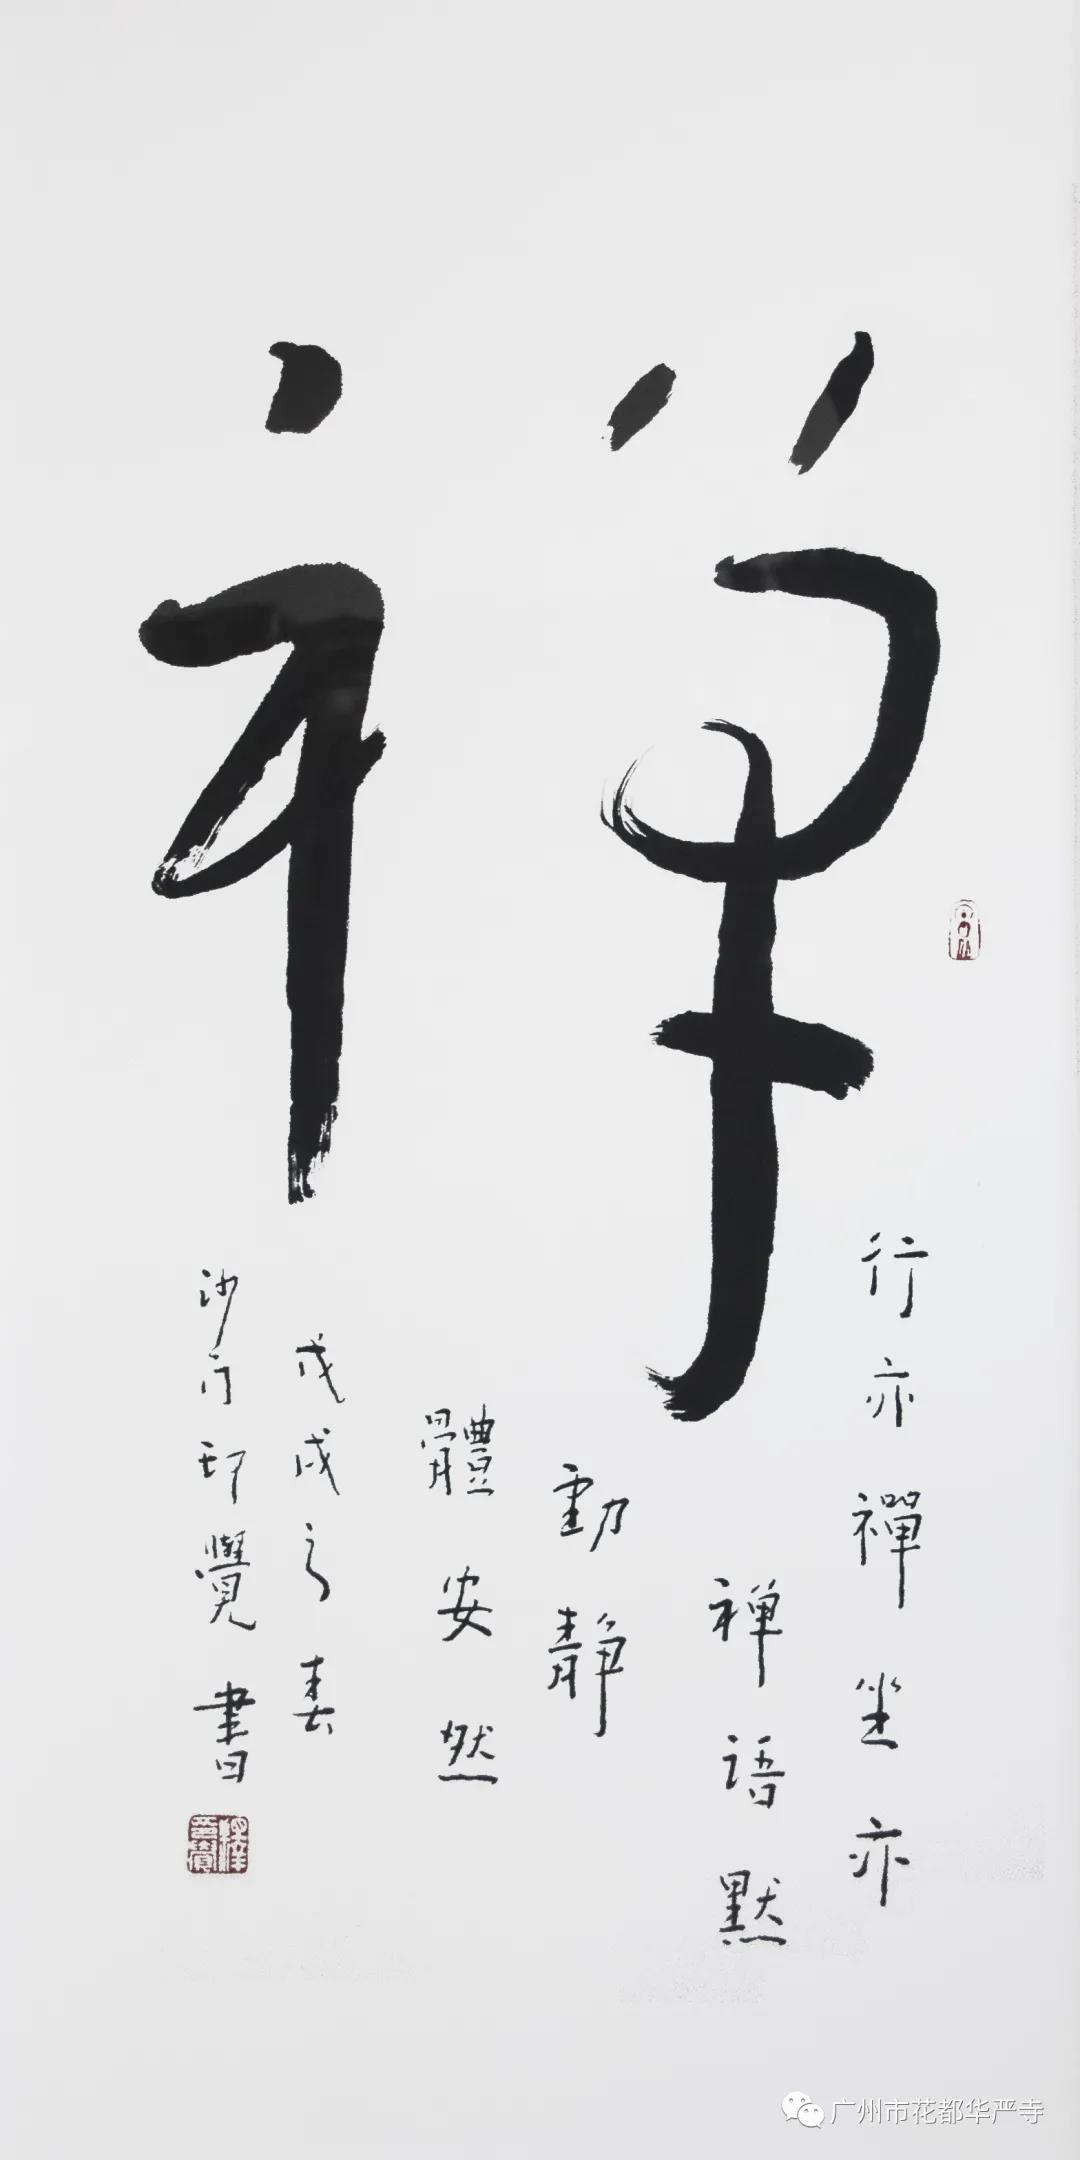 禅
行亦禪坐亦
禅语默
動静
體安然
戊戌之春
沙门印覺書
广州市花都华严寺